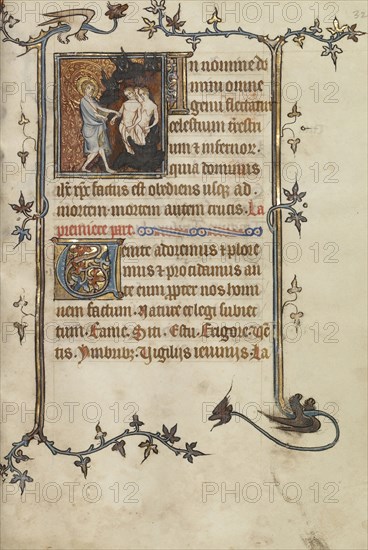 32
In nomine do
mini omne
genu flectatur
celestium terestri
um et infernor.
quia dominus
ihs xpc factus est obediens usqz ad
mortem mortem autem crucis. La
premiere pare
Uenite adoremus et plore
mus et procidamus an
te eum propter nos homi
nem factum. Nature et legi subiec
tum. Fame. Siti. Estu. Frigore
tis. Ymbribz. Vigiliis ieiuniis. La
PHOTO 12